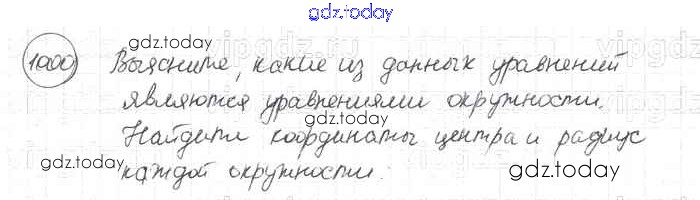 gdz.today
1000 Выясните, какие из данных уравнений
gdz.today
являются уравнениями окружности.
Найдите координаты центра и радиус
каждой окружности:
gdz.today
gdz.today
gdz.today